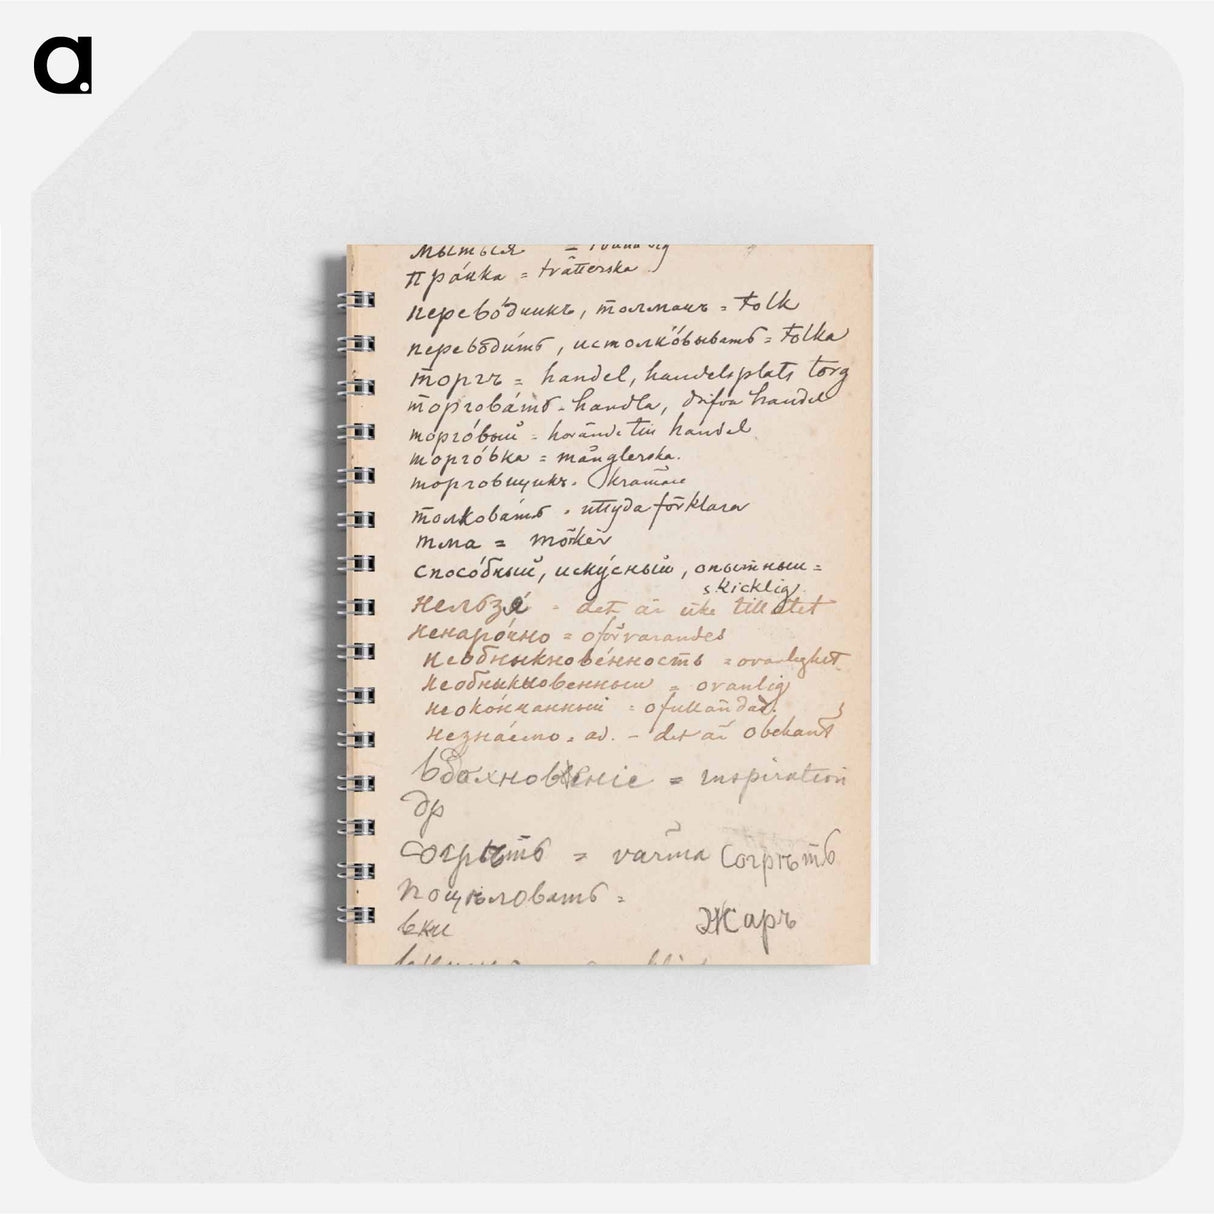 a.
мыться =
прачка = tvätterska
переводчикъ, толмачъ = tolk
переводить, истолковывать = tolka
торгъ = handel, handelsplats torg
торговать = handla, drifva handel
торговый = hörande till handel
торговка = månglerska.
торговщикъ. krämare
толковать . uttyda förklara
тма = mörker
способный, искусный, опытный =
skicklig.
нельзя = det är icke tillåtet
ненарочно = oförvarandes
необыкновенность = ovanlighet
необыкновенный = ovanlig
неоконч анный = ofulländad.
незнаемо = ad. - det är obekant
вдохновение = inspiration
др
согрѣть = värma Согрѣть
поцѣловать =
вки
Жаръ